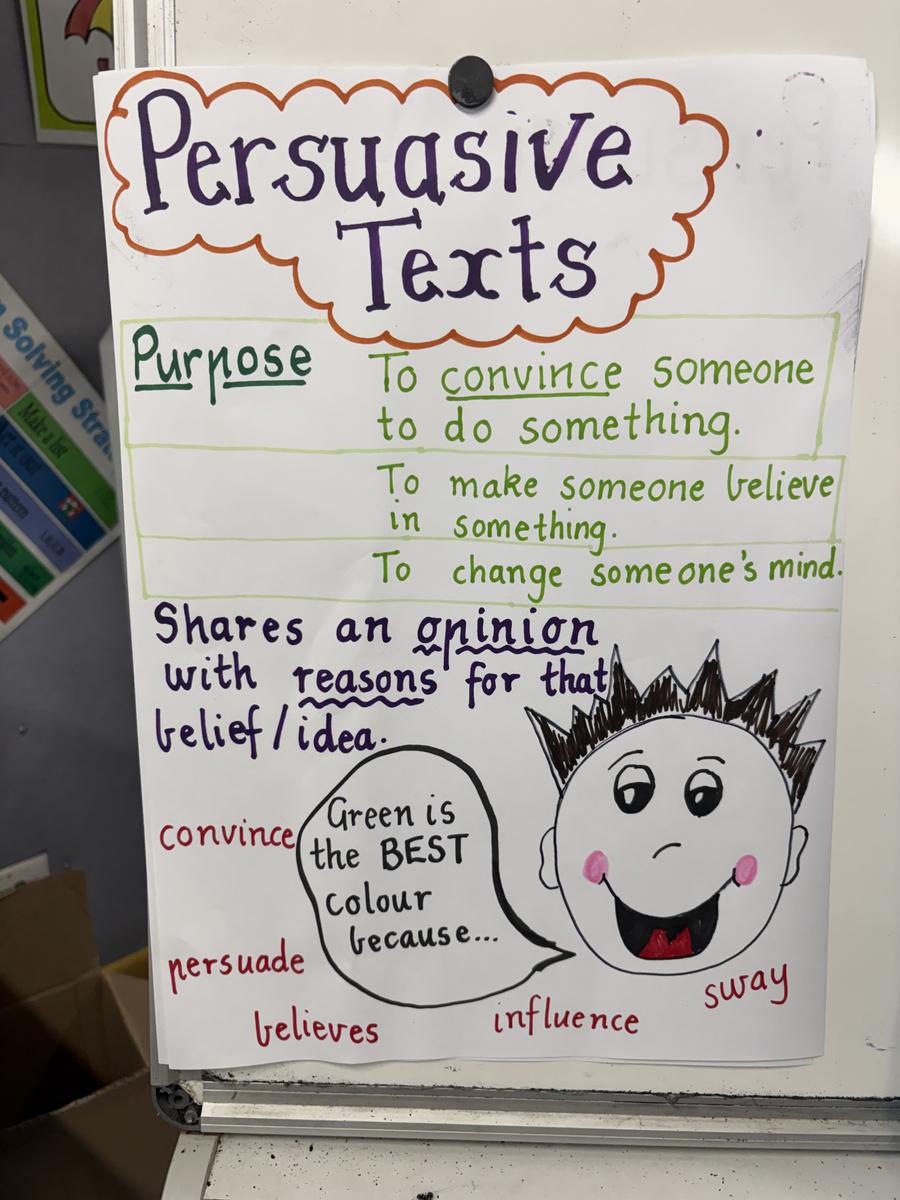 Persuasive
Texts
Purpose
To convince someone
to do something.
To make someone believe
in something.
To change someone's mind.
Shares an opinion
with reasons for that
belief/idea.
Green is
the BEST
colour
because...
convince
persuade
believes
influence
sway
Solving Strat
Make a list